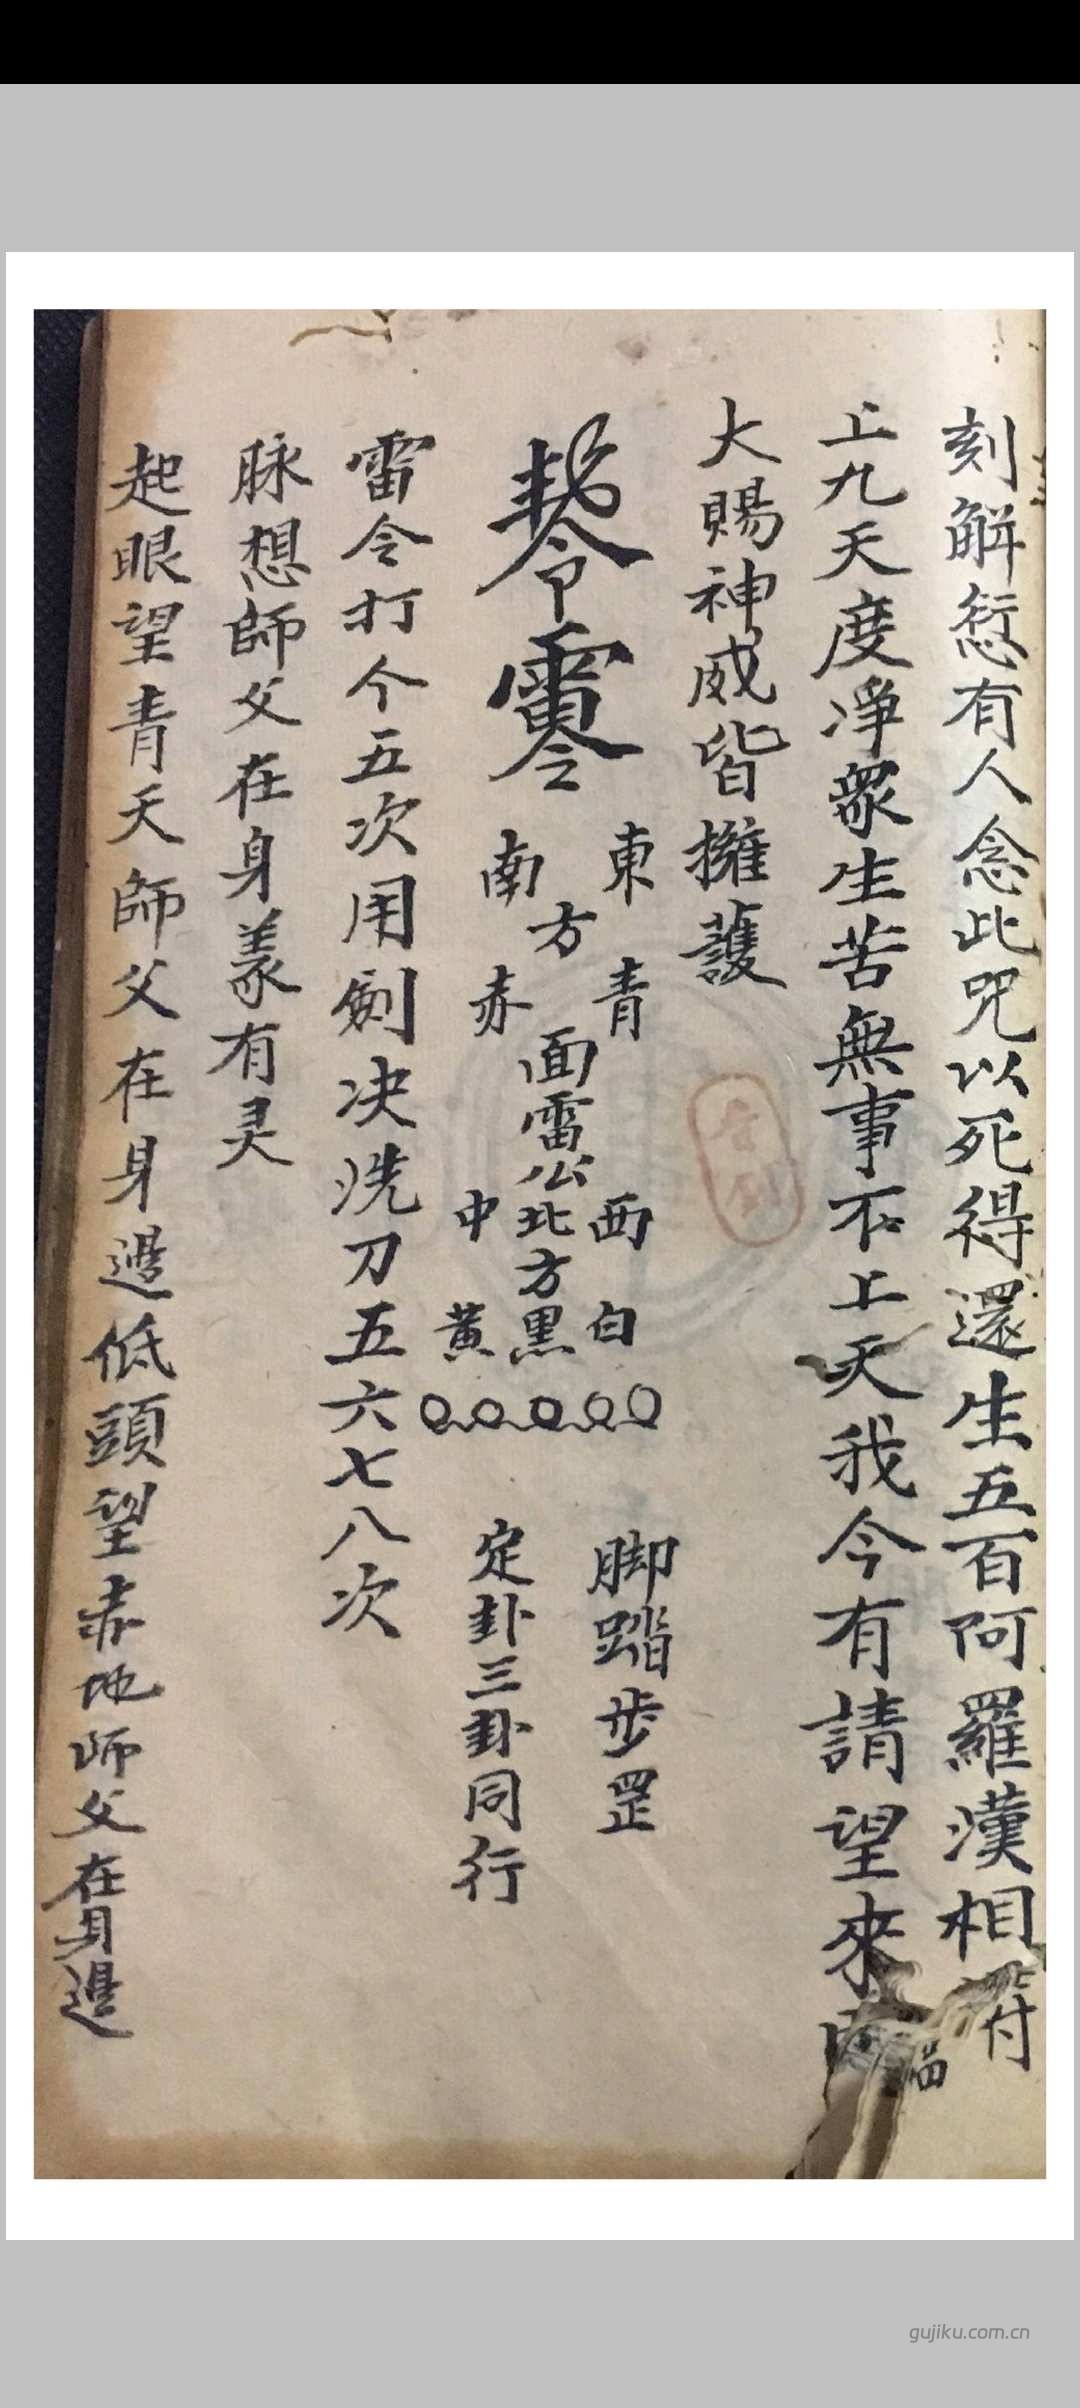 刻解愆有人念此咒以死得還生五百阿羅漢相付
上九天度凈眾生苦無事不上天我今有請望來
福
大賜神威皆擁護
東
青
南
方
赤
面雷公
西
白
北方黑
中
黃
脚踏步罡
定卦三卦同行
雷令打个五次用劍决洗刀五六七八次
脉想師父在身羕有灵
起眼望青天師父在身邊低頭望赤地师父在身邊
gujiku.com.cn